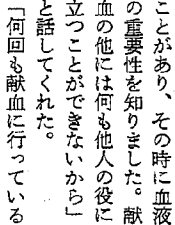 ことがあり、その時に血液
の重要性を知りました。献
血の他には何も他人の役に
立つことができないから」
と話してくれた。
「何回も献血に行っている